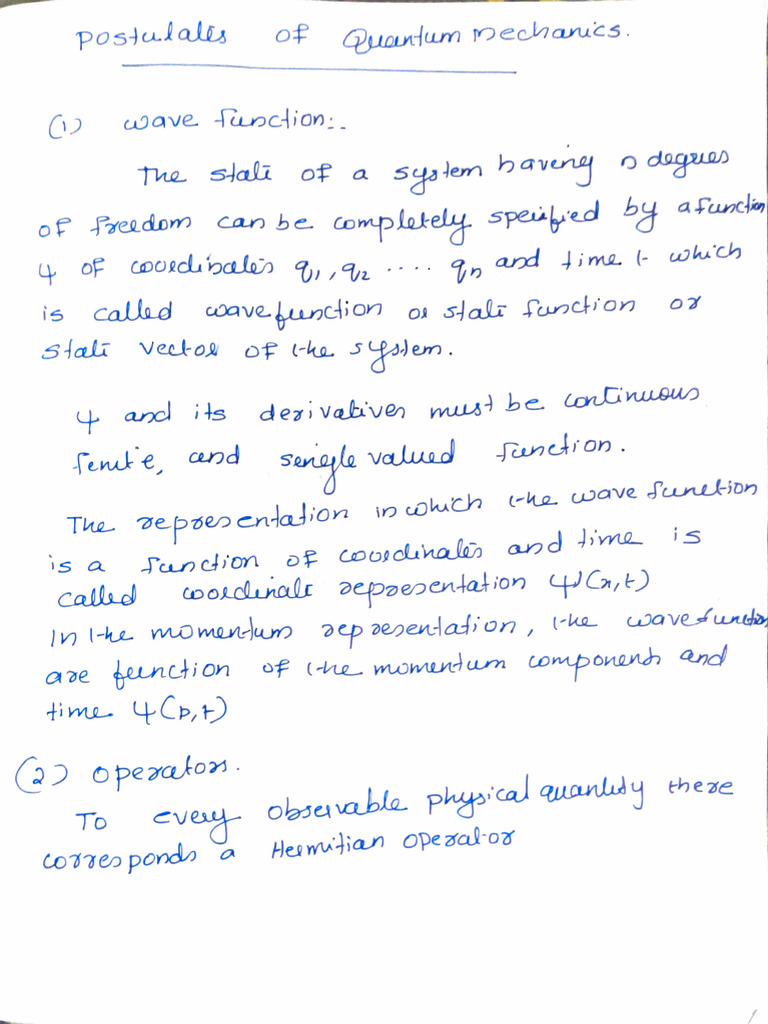 Postulates of Quantum Mechanics.
(1) wave function:-
The state of a system having n degrees
of freedom can be completely specified by a function
ψ of coordinates q₁, q₂ .... qₙ and time t which
is called wavefunction or state function or
state vector of the system.
ψ and its derivatives must be continuous
finite, and single valued function.
The representation in which the wave function
is a function of coordinates and time is
called coordinate representation ψ(x,t)
In the momentum representation, the wavefunction
are function of the momentum components and
time ψ(p,t)
(2) Operators.
To every observable physical quantity there
corresponds a Hermitian operator